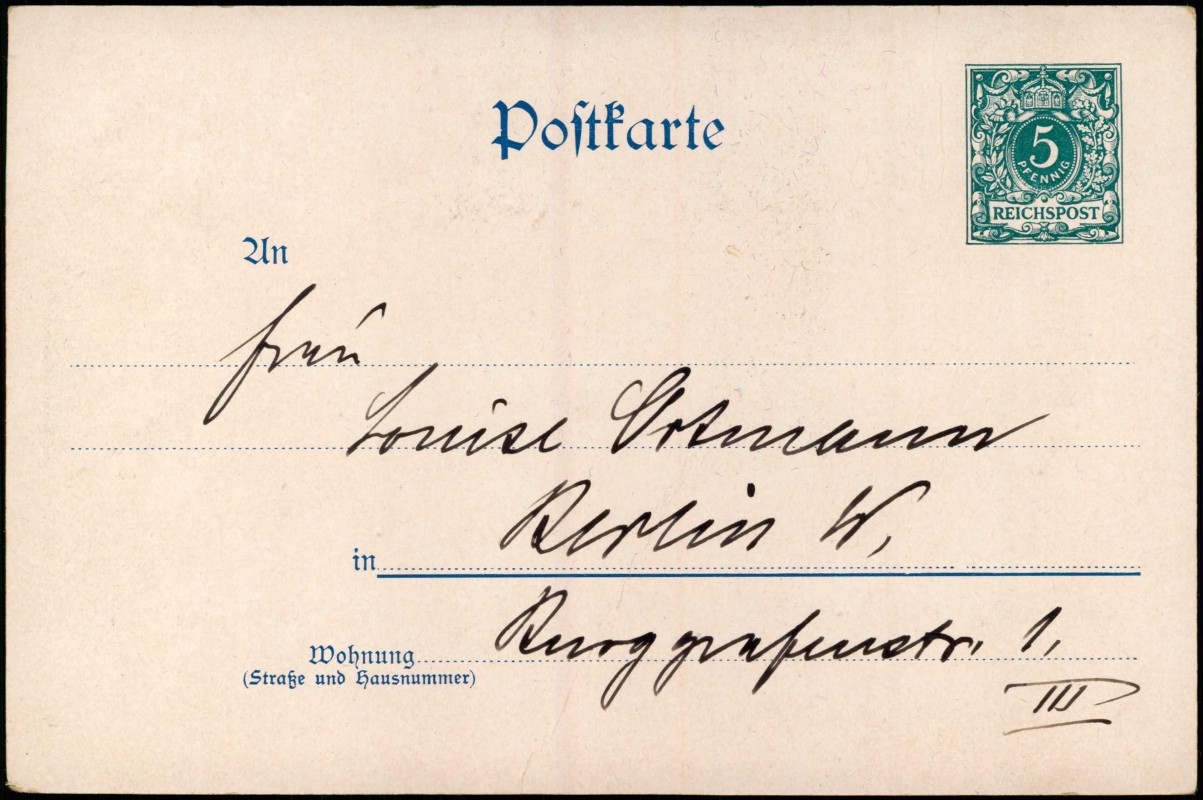 Postkarte
5
PFENNIG
REICHSPOST
An
Frau
Louise Ortmann
in Berlin W.
Wohnung Burggrafenstr. 1.
(Straße und Hausnummer)
III